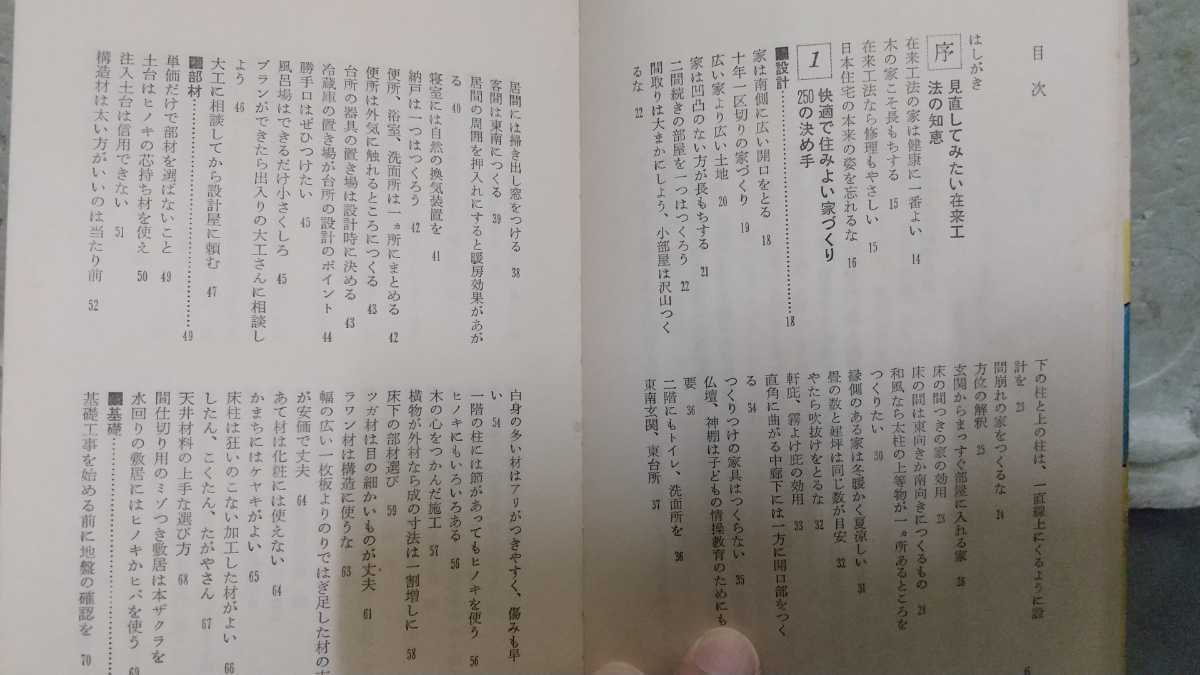 目次
はしがき
序 見直してみたい在来工
法の知恵
在来工法の家は健康に一番よい 14
木の家こそ長もちする 15
在来工法なら修理もやさしい 15
日本住宅の本来の姿を忘れるな 16
1 快適で住みよい家づくり
250の決め手
■設計……………………18
家は南側に広い開口をとる 18
十年一区切りの家づくり 19
広い家より広い土地 20
家は凹凸のない方が長もちする 21
二間続きの部屋を一つはつくろう 22
間取りは大まかにしよう、小部屋は沢山つく
るな 22
下の柱と上の柱は、一直線上にくるように設
計を 23
間崩れの家をつくるな 24
方位の解釈 25
玄関からまっすぐ部屋に入れる家 26
床の間つきの家の効用 28
床の間は東向きか南向きにつくるもの 28
和風なら太柱の上等物が一ヵ所あるところを
つくりたい 30
縁側のある家は冬暖かく夏涼しい 31
畳の数と建坪は同じ数が目安 32
やたら吹抜けをとるな 32
軒庇、霧よけ庇の効用 33
直角に曲がる中廊下には一方に開口部をつく
る 34
つくりつけの家具はつくらない 35
仏壇、神棚は子どもの情操教育のためにも
要 36
二階にもトイレ、洗面所を 36
東南玄関、東台所 37
6
居間には掃き出し窓をつける 38
客間は東南につくる 39
居間の周囲を押入れにすると暖房効果があが
る 40
寝室には自然の換気装置を 41
納戸は一つはつくろう 42
便所、浴室、洗面所は一ヵ所にまとめる 42
便所は外気に触れるところにつくる 43
台所の器具の置き場は設計時に決める 43
冷蔵庫の置き場が台所の設計のポイント 44
勝手口はぜひつけたい 45
風呂場はできるだけ小さくしろ 45
プランができたら出入りの大工さんに相談し
よう 46
大工に相談してから設計屋に頼む 47
■部材……………………49
単価だけで部材を選ばないこと 49
土台はヒノキの芯持ち材を使え 50
注入土台は信用できない 51
構造材は太い方がいいのは当たり前 52
白身の多い材はアリがつきやすく、傷みも早
い 54
一階の柱には節があってもヒノキを使う 56
ヒノキにもいろいろある 56
木の心をつかんだ施工 57
横物が外材なら成の寸法は一割増しに 58
床下の部材選び 59
ツガ材は目の細かいものが丈夫 61
ラワン材は構造に使うな 63
幅の広い一枚板よりのりではぎ足した材の方
が安価で丈夫 64
あて材は化粧には使えない 64
かまちにはケヤキがよい 65
床柱は狂いのこない加工した材がよい 66
したん、こくたん、たがやさん 67
天井材料の上手な選び方 68
間仕切り用のミゾつき敷居は本ザクラを
水回りの敷居にはヒノキかヒバを使う 69
■基礎……………………
基礎工事を始める前に地盤の確認を 70